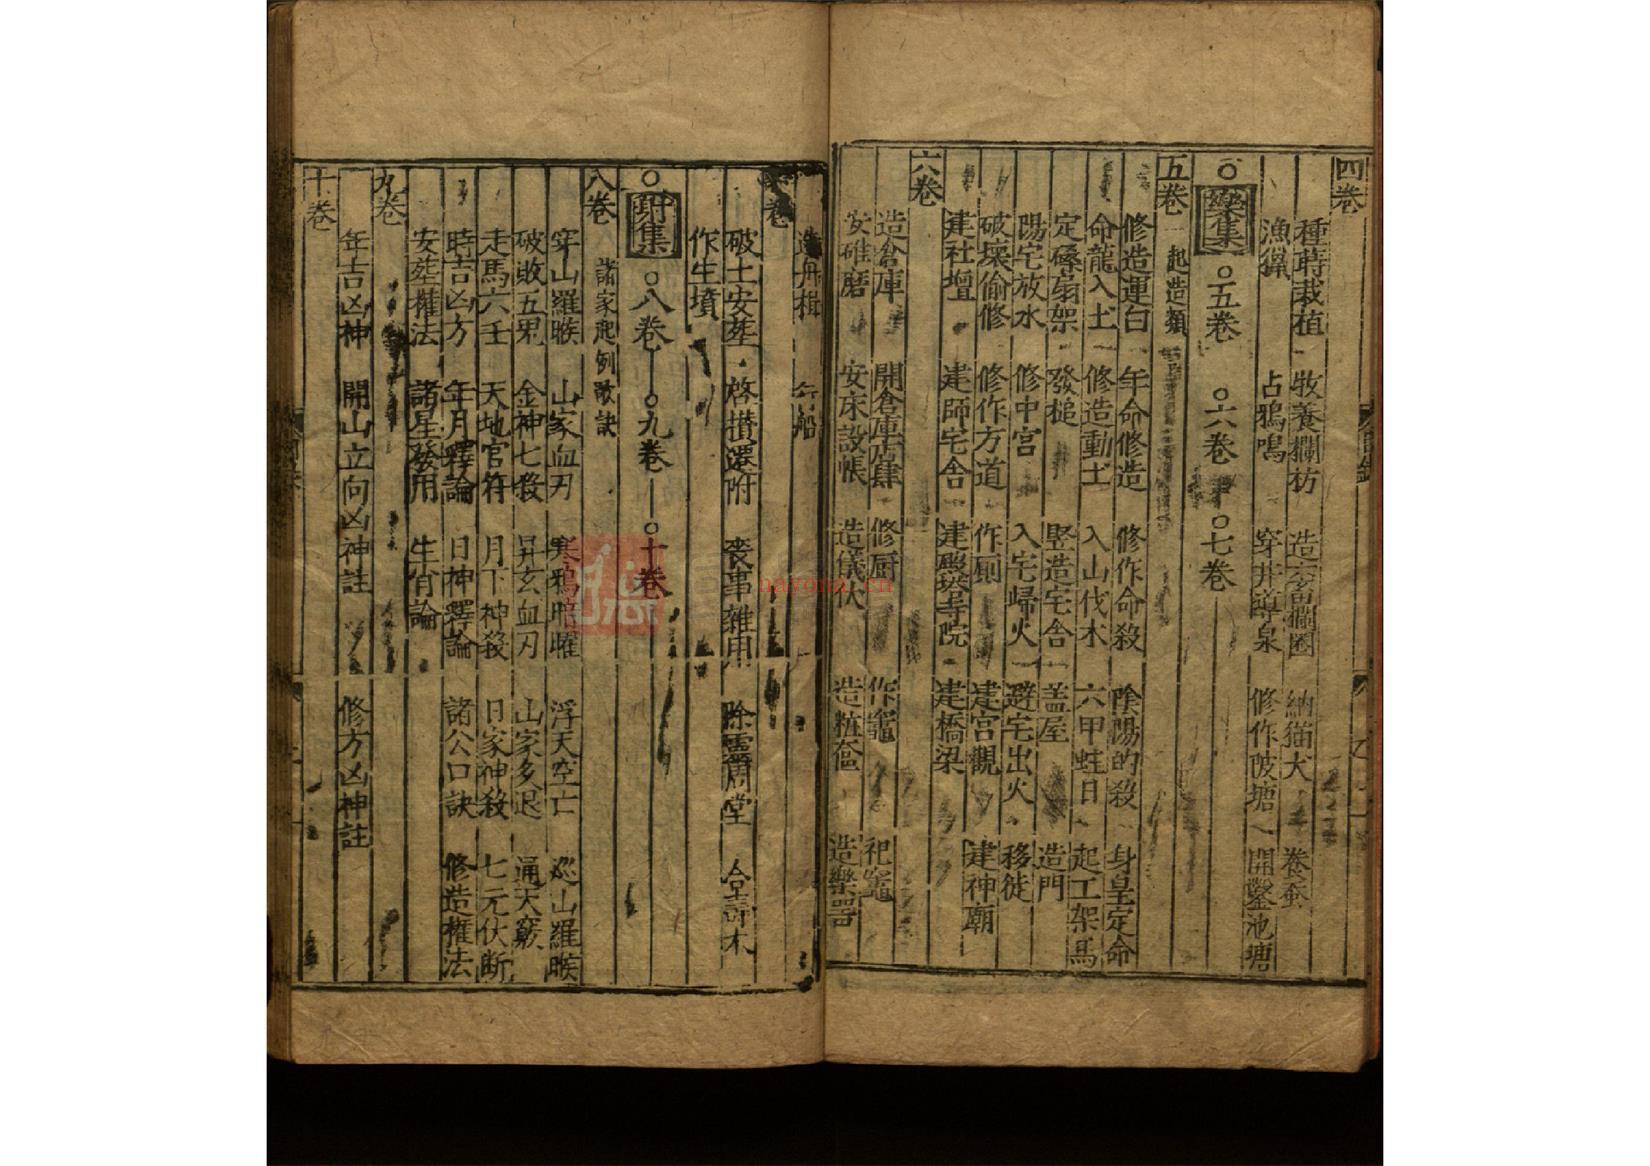 四卷
種蒔栽植 牧養欄枋 造六畜欄圈 納猫犬 養蚕
漁獵 占鴉鳴 穿井導泉 修作陂塘 開鑿池塘
○樂集 ○五卷 ○六卷 ○七卷
五卷 起造類
修造運白 年命修造 修作命殺 陰陽的殺 身皇定命
命龍入土 修造動土 入山伐木 六甲蛙日 起工架馬
定磉扇架 發槌 竪造宅舍 盖屋 造門
陽宅放水 修中宮 入宅歸火 避宅出火 移徙
破壞偷修 修作方道 作厠 建宮觀 建神廟
建社壇 建師宅舍 建殿塔寺院 建橋梁
六卷
造倉庫 開倉庫店肆 修厨 作竈 祀竈
安碓磨 安床設帳 造儀仗 造粧奩 造樂器
造舟楫
卷
破土安葬 啓攢遷附 喪事雜用 除靈周堂 合壽木
作生墳
○射集 ○八卷 ○九卷 ○十卷
八卷 諸家起例歌訣
穿山羅睺 山家血刃 寒鴉暗曜 浮天空亡 巡山羅睺
破敗五鬼 金神七殺 昇玄血刃 山家多退 通天竅
走馬六壬 天地官符 月下神殺 日家神殺 七元伏断
時吉凶方 年月釋論 日神釋論 諸公口訣 修造權法
安葬權法 諸星發用 生肖論
九卷
年吉凶神 開山立向凶神註 修方凶神註
十卷
nayona.cn